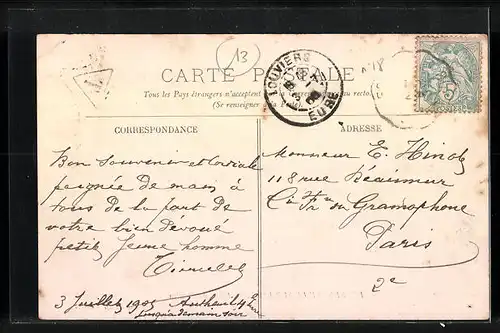 13
CARTE POSTALE
Tous les Pays étrangers n'acceptent pas la Correspondance au recto.
(Se renseigner à la Poste).
LOUVIERS
EURE
5
CORRESPONDANCE
ADRESSE
Bon Souvenir et Cordiale
poignée de main à
tous de la part de
votre bien dévoué
petit Jeune homme
3 Juillet 1905
jusqu'à demain soir
Monsieur E. Hinot
118 rue Réaumur
Cie Fr du Gramophone
Paris
2e